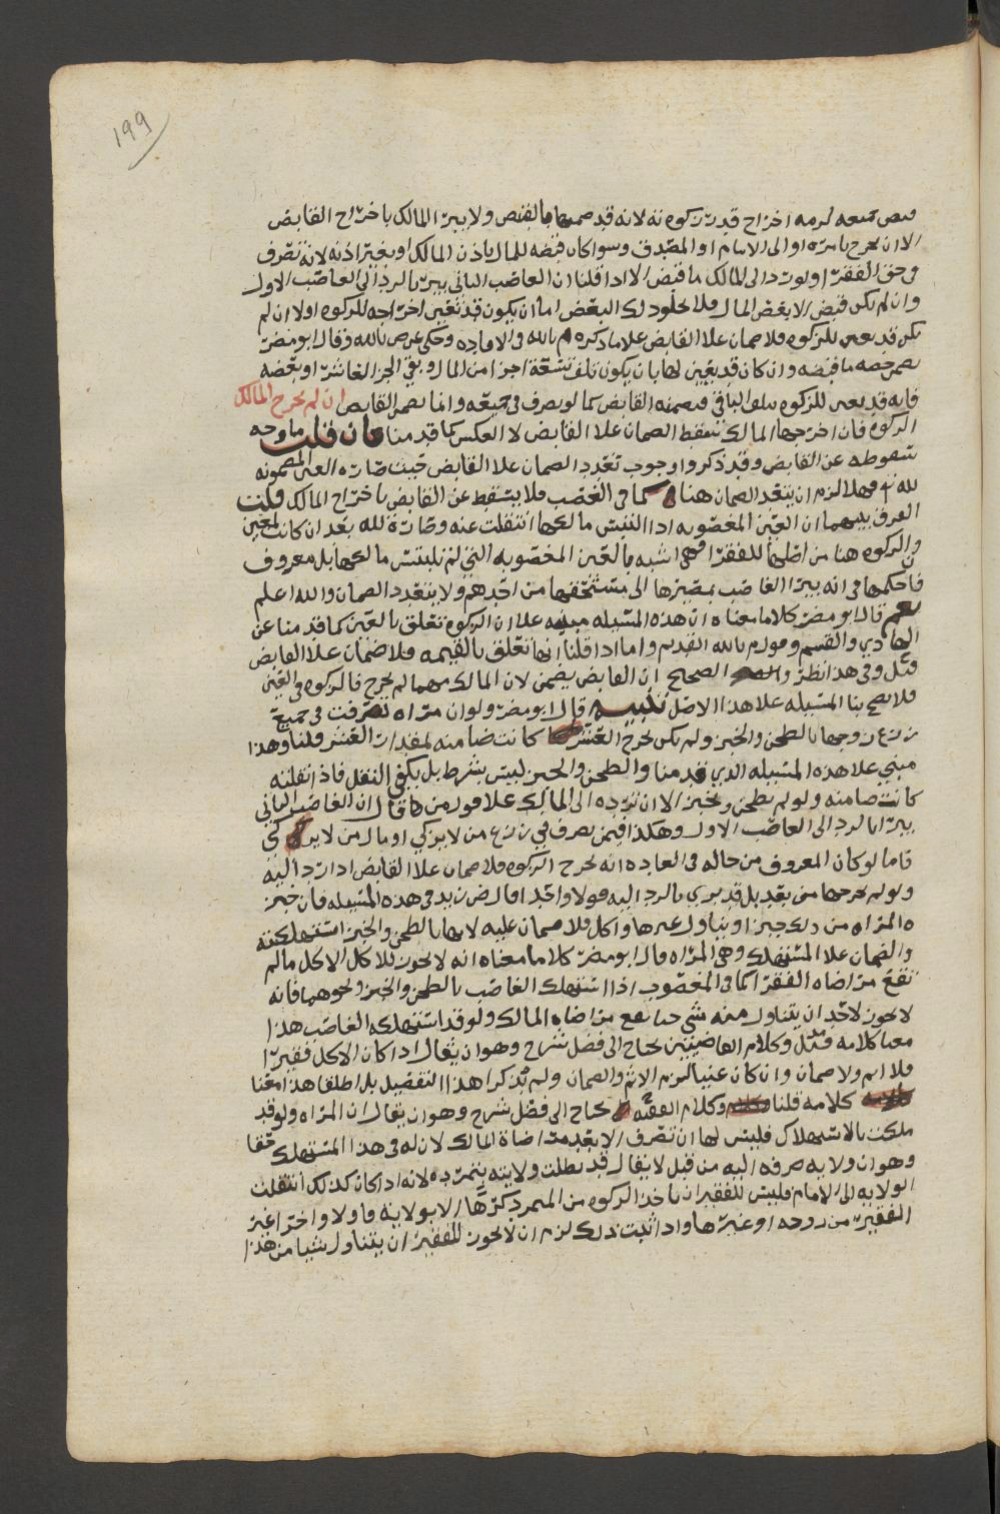 ١٩٩
قبض جميعه لزمه اخراج قدر زكوته لانه قد ضمنها بالقبض ولا يبرا المالك باخراج القابض
الا ان يخرج بامره او الى الامام او المصدق وسوا كان قبضه للمال باذن المالك او بغير اذنه لانه تصرف
في حق الفقرا ولو رد الى المالك ما قبض الا اذا قلنا ان الغاصب الثاني يبرا بالرد الى الغاصب الاول
وان لم يكن قبض الا بعض المال فلا يخلو ذلك البعض اما ان يكون قد تعين اخراجه للزكوه اولا ان لم
يكن قد تعين للزكوه فلا ضمان علا القابض علا ما ذكره م بالله في الافاده وحكى عن ص بالله وقال ابو مضر
يضمن حصه ما قبضه وان كان قد تعين لها بان يكون تلف تسعة اجزا من المال وبقي الجز العاشر او بعضه
فانه قد تعين للزكوه الباقي فيضمنه القابض كما لو تصرف في جميعه وانما يضمن القابض ان لم يخرج المالك
الزكوه فان اخرجها المالك سقط الضمان علا القابض لا العكس كما قدمنا فان قلت ما وجه
سقوطه عن القابض وقد ذكروا وجوب تعدد الضمان علا القابض حيث صارت العين المضمونه
لله تع فهلا لزم ان يتعدد الضمان هنا كما في الغصب فلا يسقط عن القابض باخراج المالك قلت
الفرق بينهما ان العين المغصوبه اذا التبس مالكها انتقلت عنه وصارت لله بعد ان كانت لمعين
والزكوه هنا من اصلها للفقرا فهي اشبه بالعين المغصوبه التي لم يلتبس مالكها بل معروف
فاحكمها في انه يبرا الغاصب بمصيرها الى مستحقها من احدهم ولا يتعدد الضمان والله اعلم
نعم قال ابو مضر كلاما معناه ان هذه المسئله مبنيه علا ان الزكوه تتعلق بالعين كما قدمنا عن
الهادي والقسم وقول م بالله القديم واما اذا قلنا انها تتعلق بالقيمه فلا ضمان علا القابض
قيل وفي هذا نظر الصحيح ان القابض يضمن لان المالك مهما لم يخرج فالزكوه في العين
فلا يصح بنا المسئله علا هذا الاصل تنبيه قال ابو مضر ولو ان مراه تصرفت في جميع
زرع زوجها بالطحن والخبز ولم يكن يخرج العشر كانت ضامنه لمقدار العشر قلنا وهذا
مبني علا هذه المسئله الذي قدمنا والطحن والخبز ليس بشرط بل يكفي النقل فاذا نقلته
كانت ضامنه ولو لم يطحن ويخبز الا ان ترده الى المالك علا قول من قال ان الغاصب الثاني
يبرا بالرد الى الغاصب الاول وهكذا فيمن تصرف في زرع من لا يزكي او مال من لا يزكي
فاما لو كان المعروف من حاله في العاده انه يخرج الزكوه فلا ضمان علا القابض اذا رد اليه
ولو لم يخرجها من بعد بل قد بري بالرد اليه قولا واحدا قال ض زيد في هذه المسئله فان خبز
المراه من ذلك خبزا وتناول غيرها واكل فلا ضمان عليه لانها بالطحن والخبز استهلكته
والضمان علا المستهلك وهي المراه قال ابو مضر كلاما معناه انه لا يجوز للاكل الاكل ما لم
تقع مراضاه الفقرا كما في المغصوب اذا استهلك الغاصب بالطحن والخبز ونحوهما فانه
لا يجوز لاحد ان يتناول منه شي حتا تقع مراضاه المالك ولو قد استهلكه الغاصب هذا
معنا كلامه قيل وكلام القاضيين يحتاج الى فضل شرح وهو ان يقال اذا كان الاكل فقيرا
فلا اثم ولا ضمان وان كان غنيا لزم الاثم والضمان ولم يذكرا هذا التفصيل بل اطلقا هذا معنا
كلامه قلنا وكلام الفقيه يحتاج الى فضل شرح وهو ان يقال ان المراه ولو قد
ملكت بالاستهلاك فليس لها ان تصرف الا بعد مراضاة المالك لان له في هذا المستهلك حقا
وهو ان ولايه صرفه اليه من قبل لا يقال قد بطلت ولايته بتمرده لانه اذا كان كذلك انتقلت
الولايه الى الامام فليس للفقير ان ياخذ الزكوه من المتمرد كرها الا بولايه
الفقير من زوجه او غيرها واذا ثبت ذلك لزم ان لا يجوز للفقير ان يتناول شيا من هذا